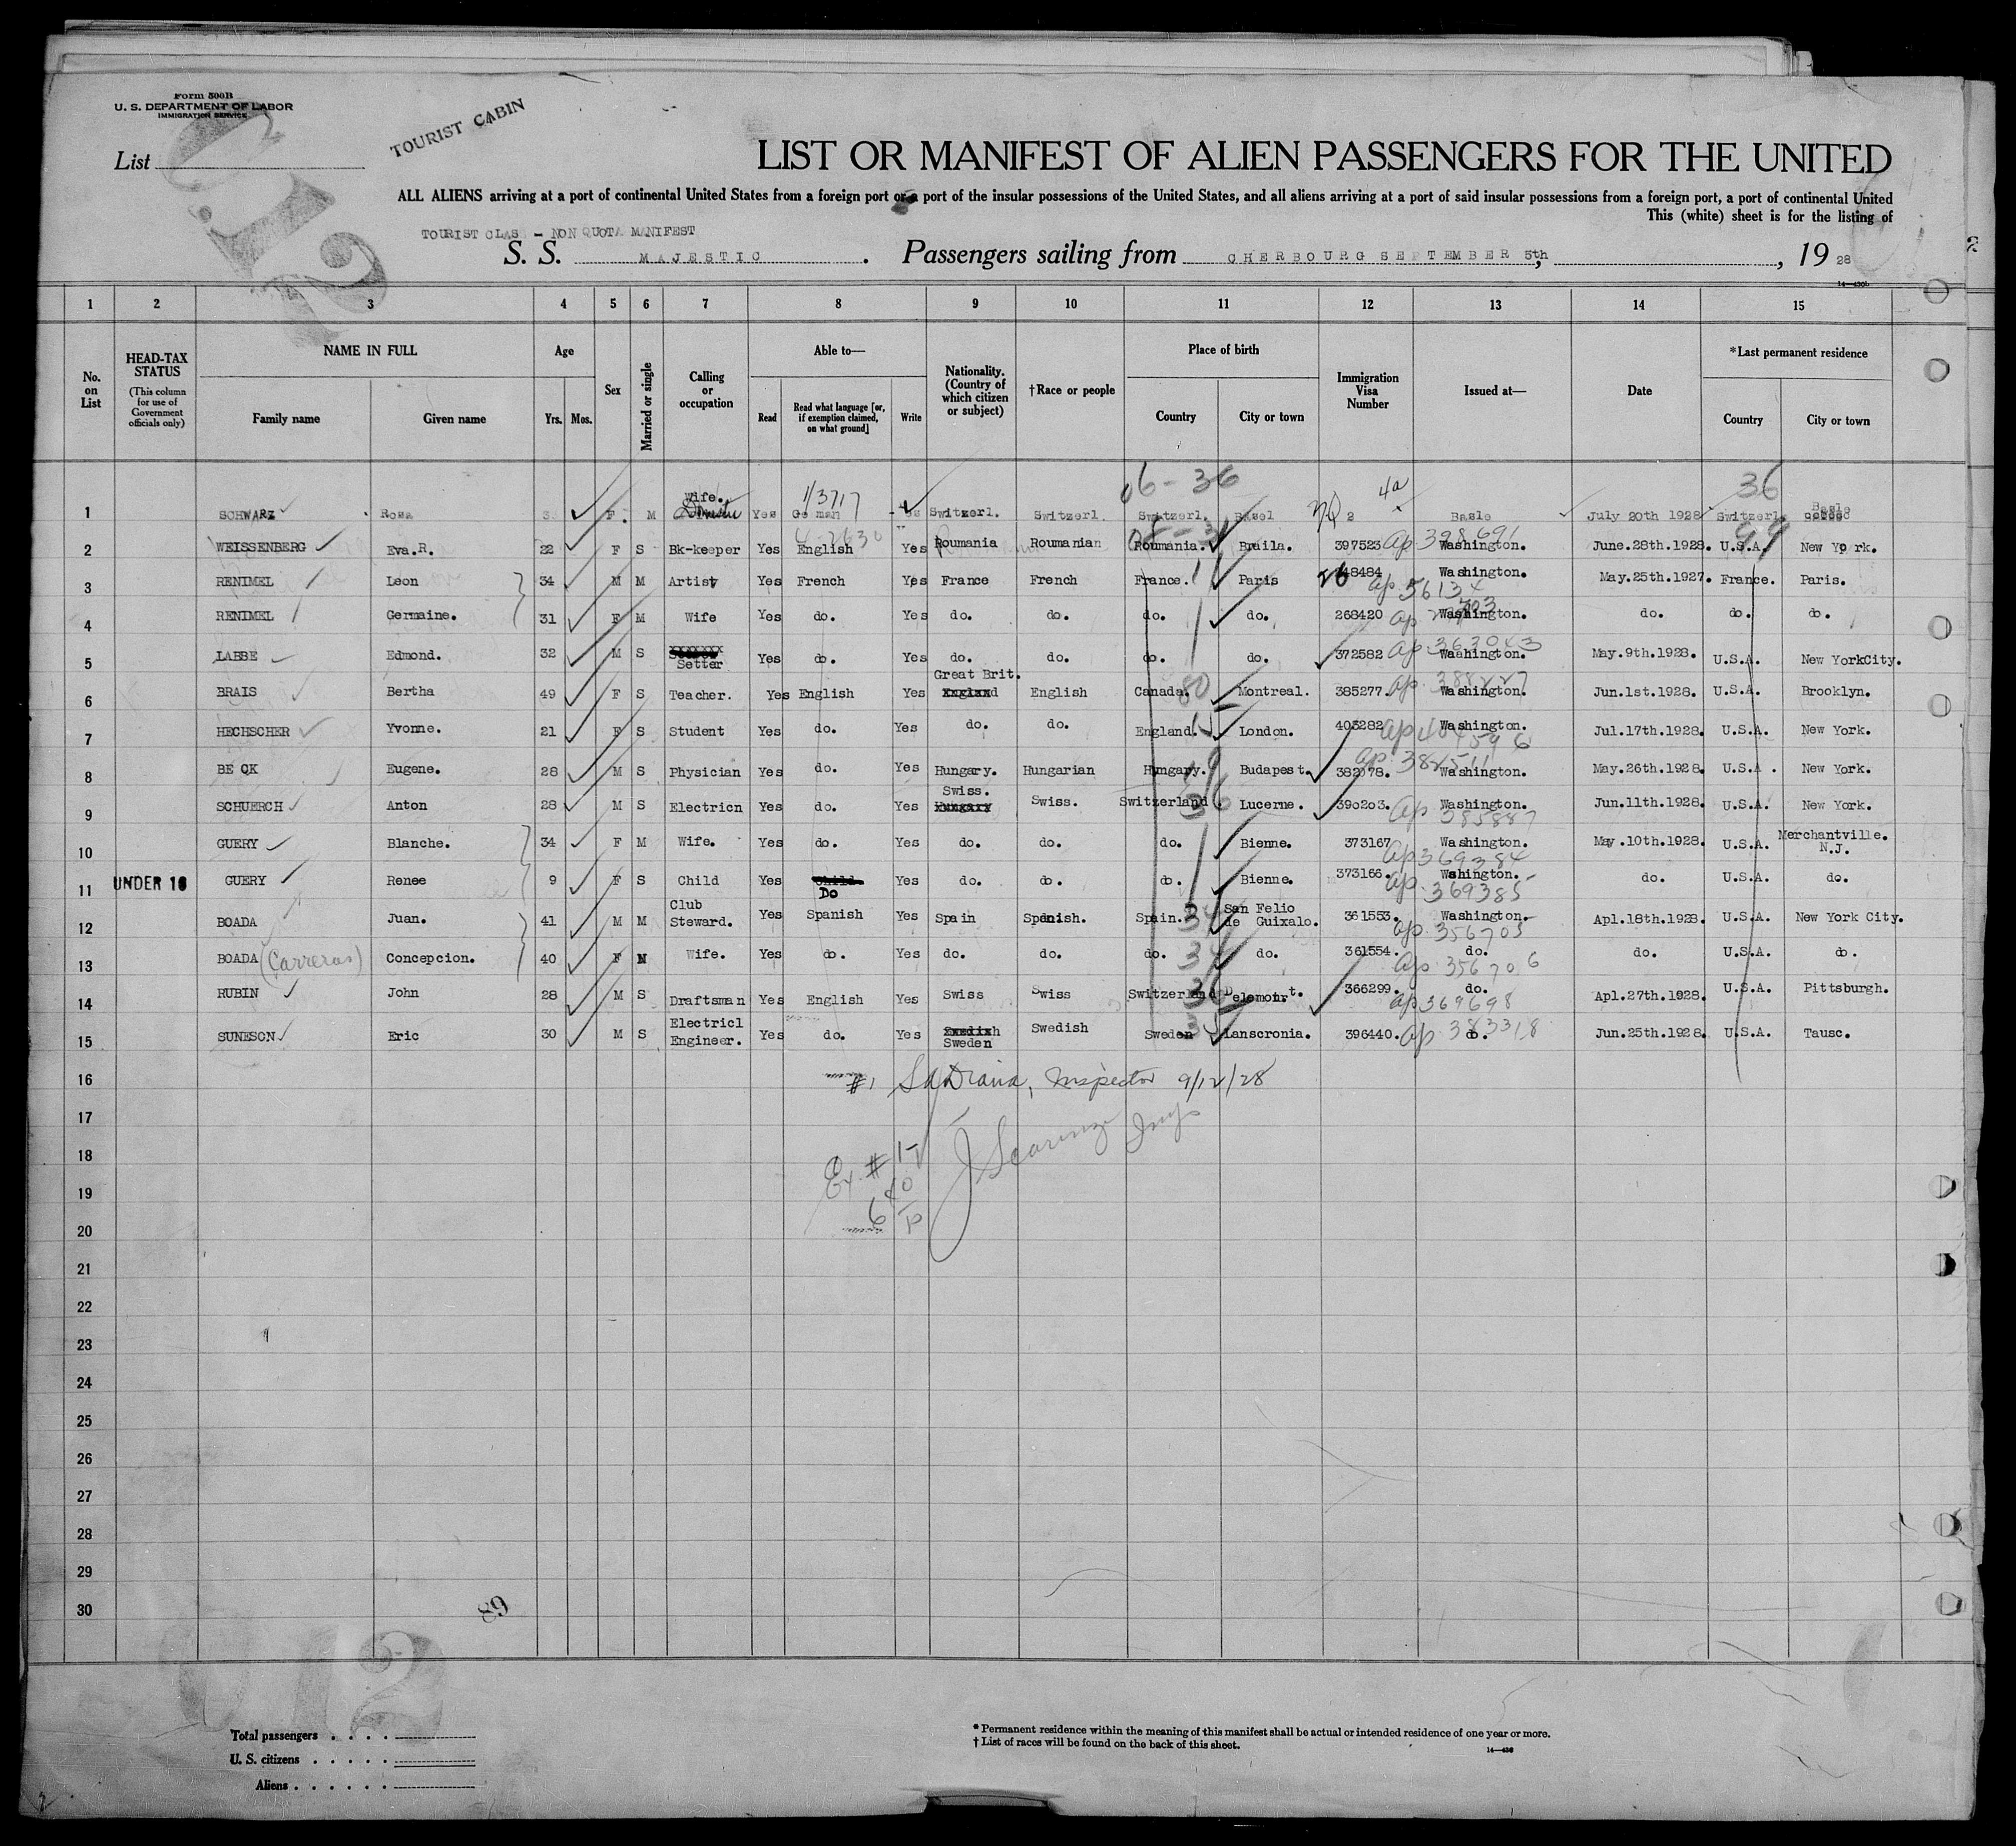 Form 500B
U. S. DEPARTMENT OF LABOR
IMMIGRATION SERVICE
TOURIST CABIN
List
LIST OR MANIFEST OF ALIEN PASSENGERS FOR THE UNITED
ALL ALIENS arriving at a port of continental United States from a foreign port or a port of the insular possessions of the United States, and all aliens arriving at a port of said insular possessions from a foreign port, a port of continental United
This (white) sheet is for the listing of
TOURIST CLAS - NON QUOTA MANIFEST
S. S. MAJESTIC. Passengers sailing from CHERBOURG SEPTEMBER 5th, , 19 28
14—430b
1 2 3 4 5 6 7 8 9 10 11 12 13 14 15
No. on List
HEAD-TAX STATUS
(This column for use of Government officials only)
NAME IN FULL
Family name Given name
Age
Yrs. Mos.
Sex
Married or single
Calling or occupation
Able to—
Read Read what language [or, if exemption claimed, on what ground] Write
Nationality. (Country of which citizen or subject)
†Race or people
Place of birth
Country City or town
Immigration Visa Number
Issued at—
Date
*Last permanent residence
Country City or town
06-36 4a 36
1 SCHWARZ Rosa F. M Wife. Yes German Switzerl. Switzerl. Switzerl. Basel NQ 2 Basle July 20th 1928 Switzerl. Basle
2 WEISSENBERG Eva.R. 22 F S Bk-keeper Yes English Yes Roumania Roumanian Roumania. Braila. 397523 ap. 398691 Washington. June.28th.1928. U.S.A. 99 New York.
3 RENIMEL Leon 34 M M Artist Yes French Yes France French France. Paris 48484 ap. 56134 Washington. May.25th.1927. France. Paris.
4 RENIMEL Germaine. 31 F M Wife Yes do. Yes do. do. do. do. 268420 Washington. do. do. do.
5 LABBE Edmond. 32 M S Setter Yes do. Yes do. do. do. do. 372582 ap. 363043 Washington. May.9th.1928. U.S.A. New YorkCity.
6 BRAIS Bertha 49 F S Teacher. Yes English Yes Great Brit. England English Canada. 80 Montreal. 385277. ap. 388227 Washington. Jun.1st.1928. U.S.A. Brooklyn.
7 HECHSCHER Yvonne. 21 F S Student Yes do. Yes do. do. England. 15 London. 403282 Washington. Jul.17th.1928. U.S.A. New York.
8 BE CK Eugene. 28 M S Physician Yes do. Yes Hungary. Hungarian Hungary. 19 Budapest. 382078. ap. 382511 Washington. May.26th.1928. U.S.A. New York.
9 SCHUERCH Anton 28 M S Electricn Yes do. Yes Swiss. Hungary Swiss. Switzerland 36 Lucerne. 390203. ap. 385887 Washington. Jun.11th.1928. U.S.A. New York.
10 GUERY Blanche. 34 F M Wife. Yes do. Yes do. do. do. Bienne. 373167 ap 369384 Washington. May.10th.1928. U.S.A. Merchantville. N.J.
11 UNDER 16 GUERY Renee 9 F S Child Yes Child Do Yes do. do. do. Bienne. 373166. ap. 369385 Washington. do. U.S.A. do.
12 BOADA Juan. 41 M M Club Steward. Yes Spanish Yes Spain Spanish. Spain. 34 San Felio de Guixalo. 361553. ap. 356705 Washington. Apl.18th.1928. U.S.A. New York City.
13 BOADA (Carreras) Concepcion. 40 F M Wife. Yes do. Yes do. do. do. 34 do. 361554. ap. 356706 do. do. U.S.A. do.
14 RUBIN John 28 M S Draftsman Yes English Yes Swiss Swiss Switzerland 36 Delemont. 366299. ap 369698 do. Apl.27th.1928. U.S.A. Pittsburgh.
15 SUNESON Eric 30 M S Electricl Engineer. Yes do. Yes Swedish Sweden Swedish Sweden Lanscronia. 396440. ap 383318 do. Jun.25th.1928. U.S.A. Tausc.
16 #1 Inspector 9/12/28
17
18 Ex. #
19
20
21
22
23
24
25
26
27
28
29
30
89
Total passengers
U. S. citizens
Aliens
* Permanent residence within the meaning of this manifest shall be actual or intended residence of one year or more.
† List of races will be found on the back of this sheet.
14—430